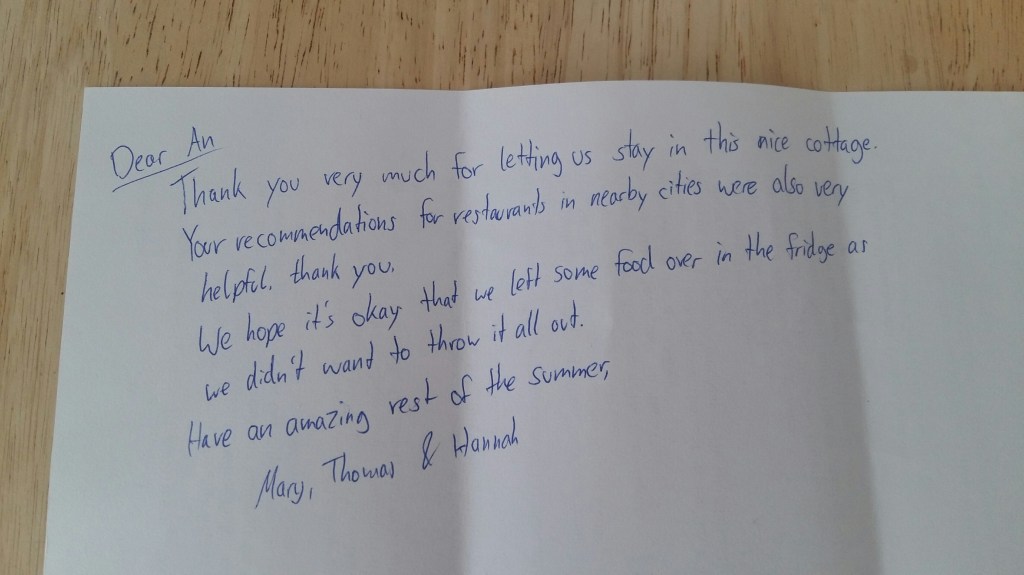 Dear An
Thank you very much for letting us stay in this nice cottage.
Your recommendations for restaurants in nearby cities were also very
helpful, thank you.
We hope it's okay that we left some food over in the fridge as
we didn't want to throw it all out.
Have an amazing rest of the summer,
Mary, Thomas & Hannah